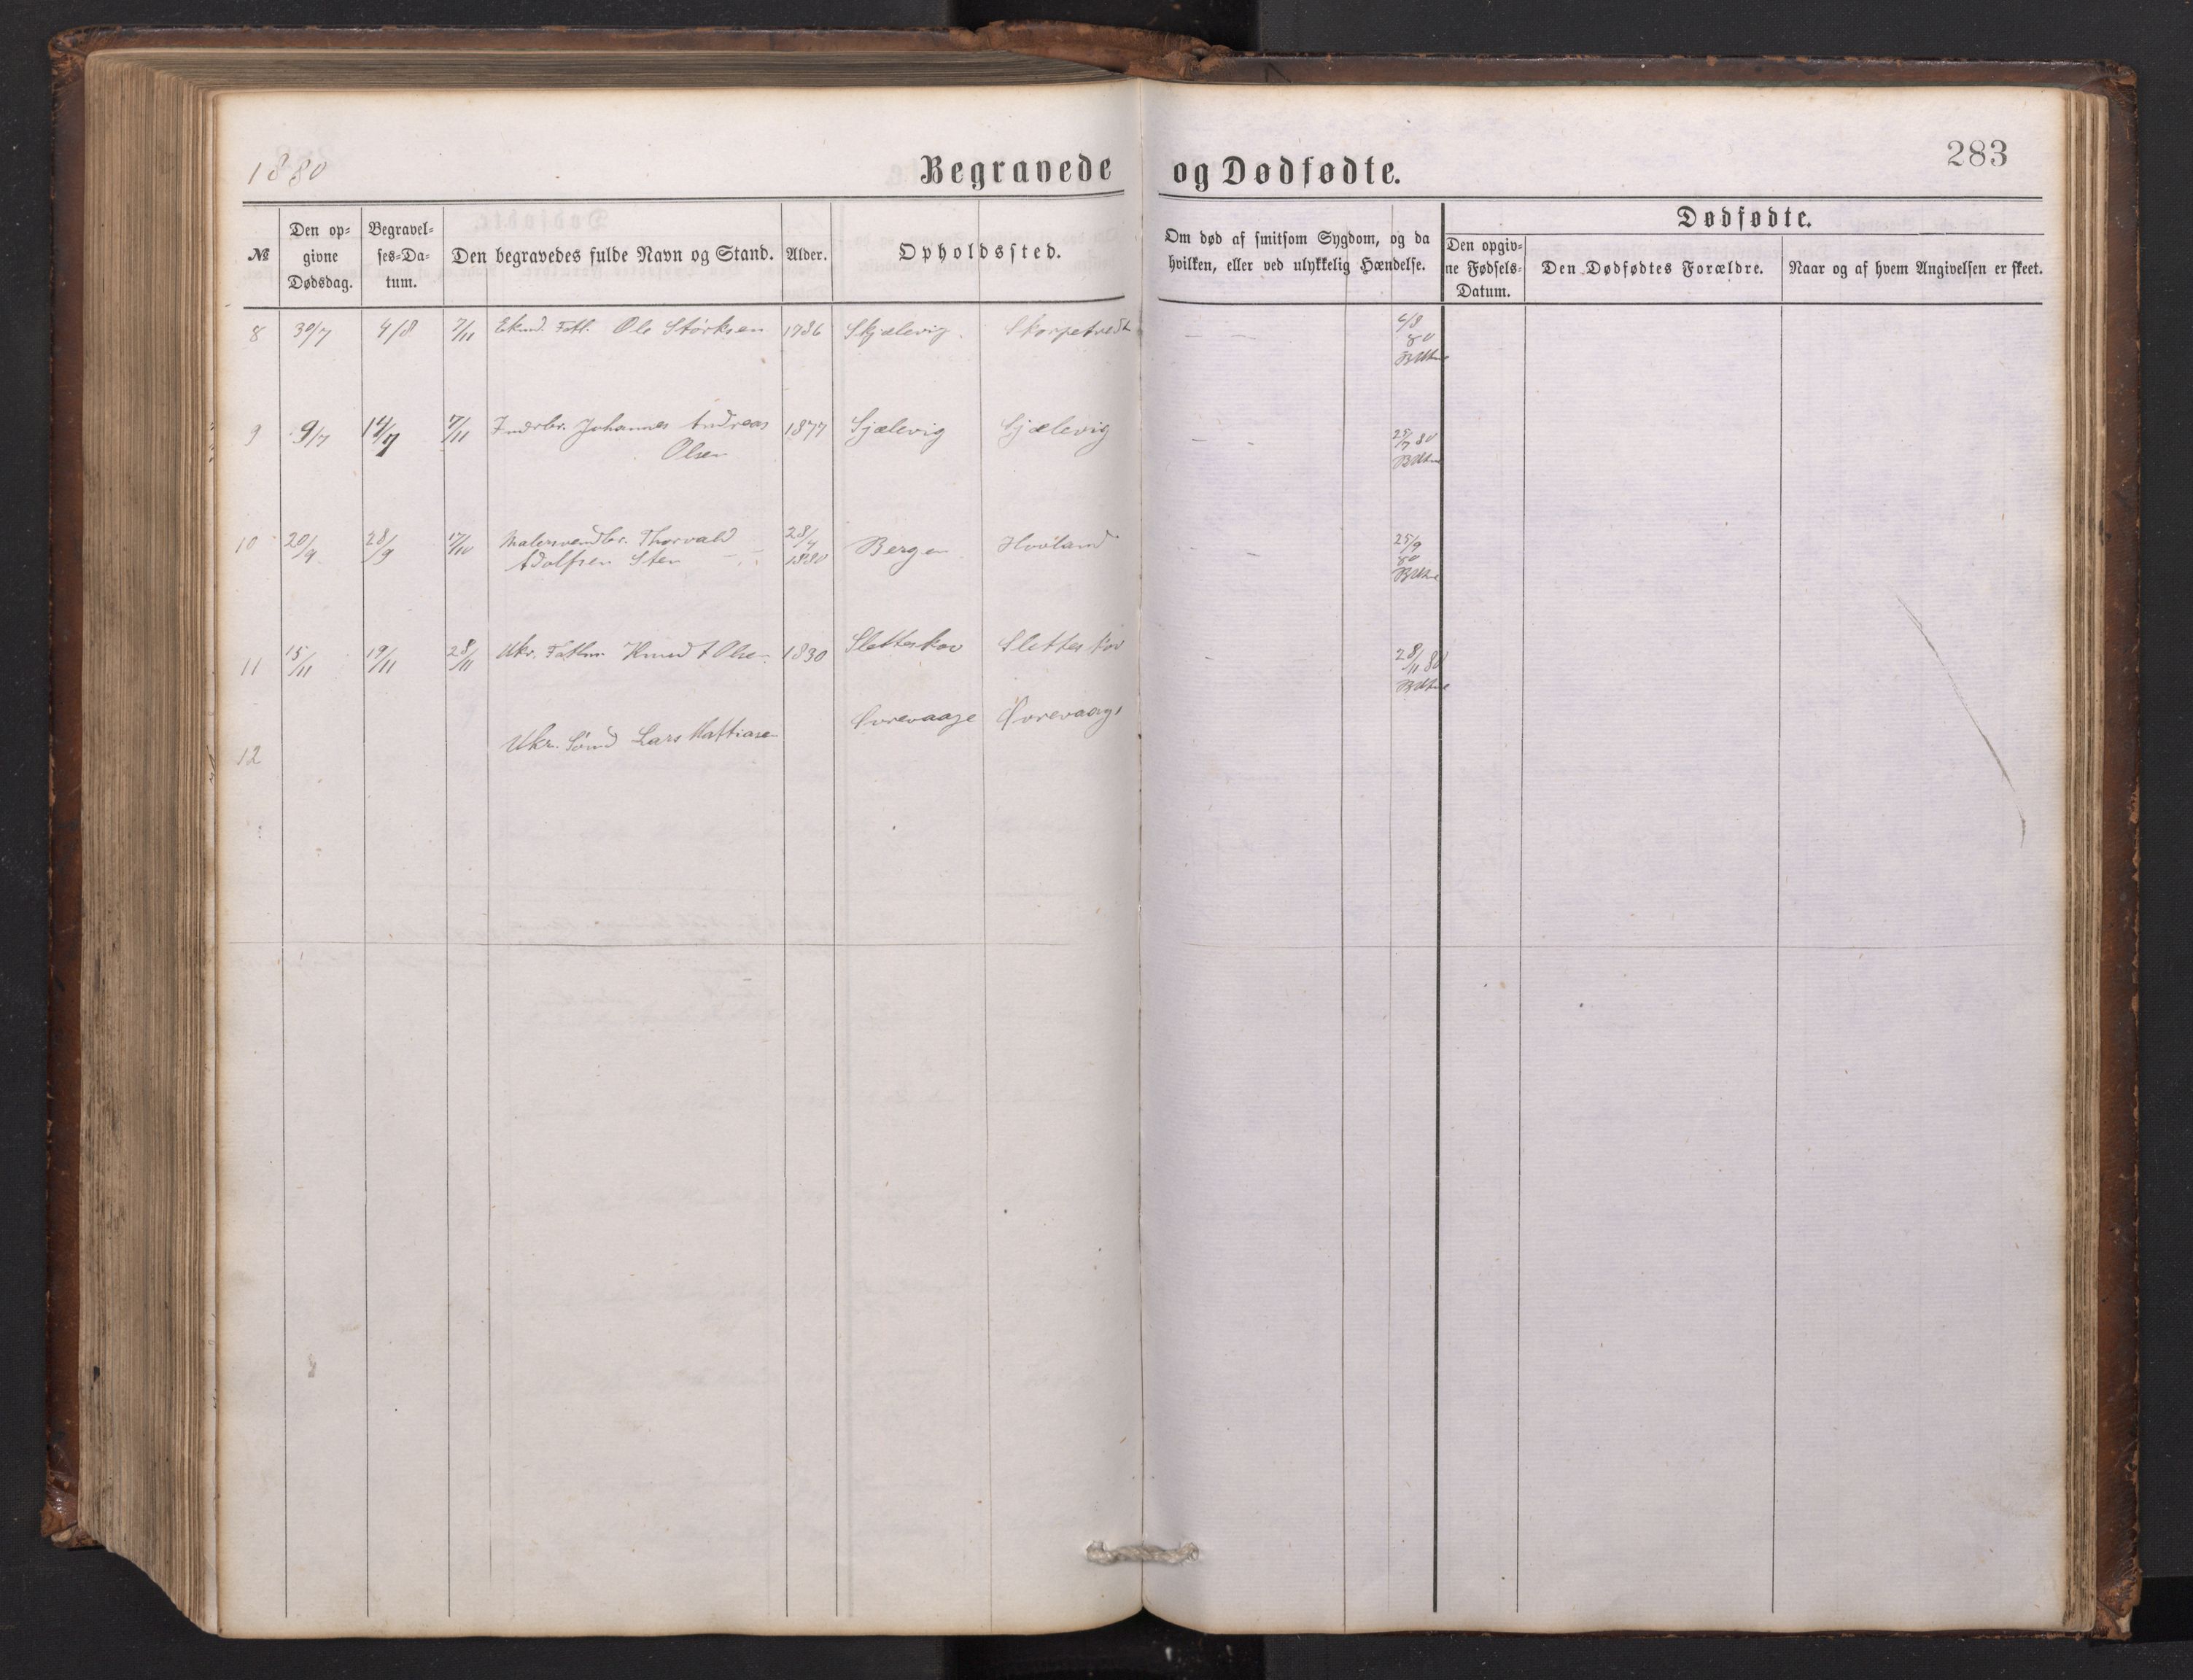 1880
Begravede og Dødfødte.
283
№
Den op-
givne
Dødsdag.
Begravel-
ses-Da-
tum.
Den begravedes fulde Navn og Stand.
Alder.
Opholdssted.
Om død af smitsom Sygdom, og da
hvilken, eller ved ulykkelig Hændelse.
Dødfødte.
Den opgiv-
ne Fødsels-
Datum.
Den Dødfødtes Forældre.
Naar og af hvem Angivelsen er skeet.
8 30/7 4/8 7/11 Ole Størksen 1786 Skjælevig. - - 4/8
80
9 9/7 14/7 7/11 Johannes Andreas 1877 Sjælevig Sjælevig - - 25/7 80
Olsen
10 20/9 28/9 17/10 Malersvendbr. Thorvald 28/4 Bergen Hovland - - 25/9
Adolfsen Sten 1880 80
11 15/11 19/11 28/11 Ukr. Knud Olsen 1830 Sletteskov Sletteskov - 28/11 80
12 Ukr. Lars Mattiasen Øvrevaage Øvrevaage